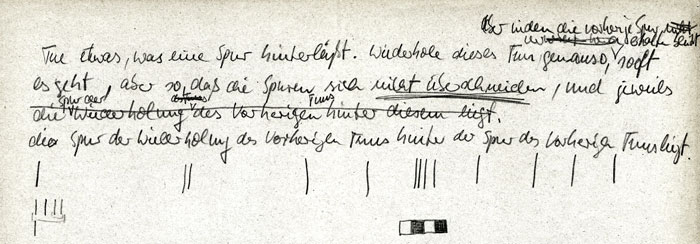 aber indem die vorherige Spur nicht
erhalten bleibt
Tue etwas, was eine Spur hinterläßt. Wiederhole dieses Tun genauso, sooft
es geht, aber so, daß die Spuren sich nicht überschneiden, und jeweils
Spur der Tuns
die Wiederholung des Vorherigen hinter diesem liegt.
die Spur der Wiederholung des Vorherigen Tuns hinter der Spur des Vorherigen Tuns liegt.